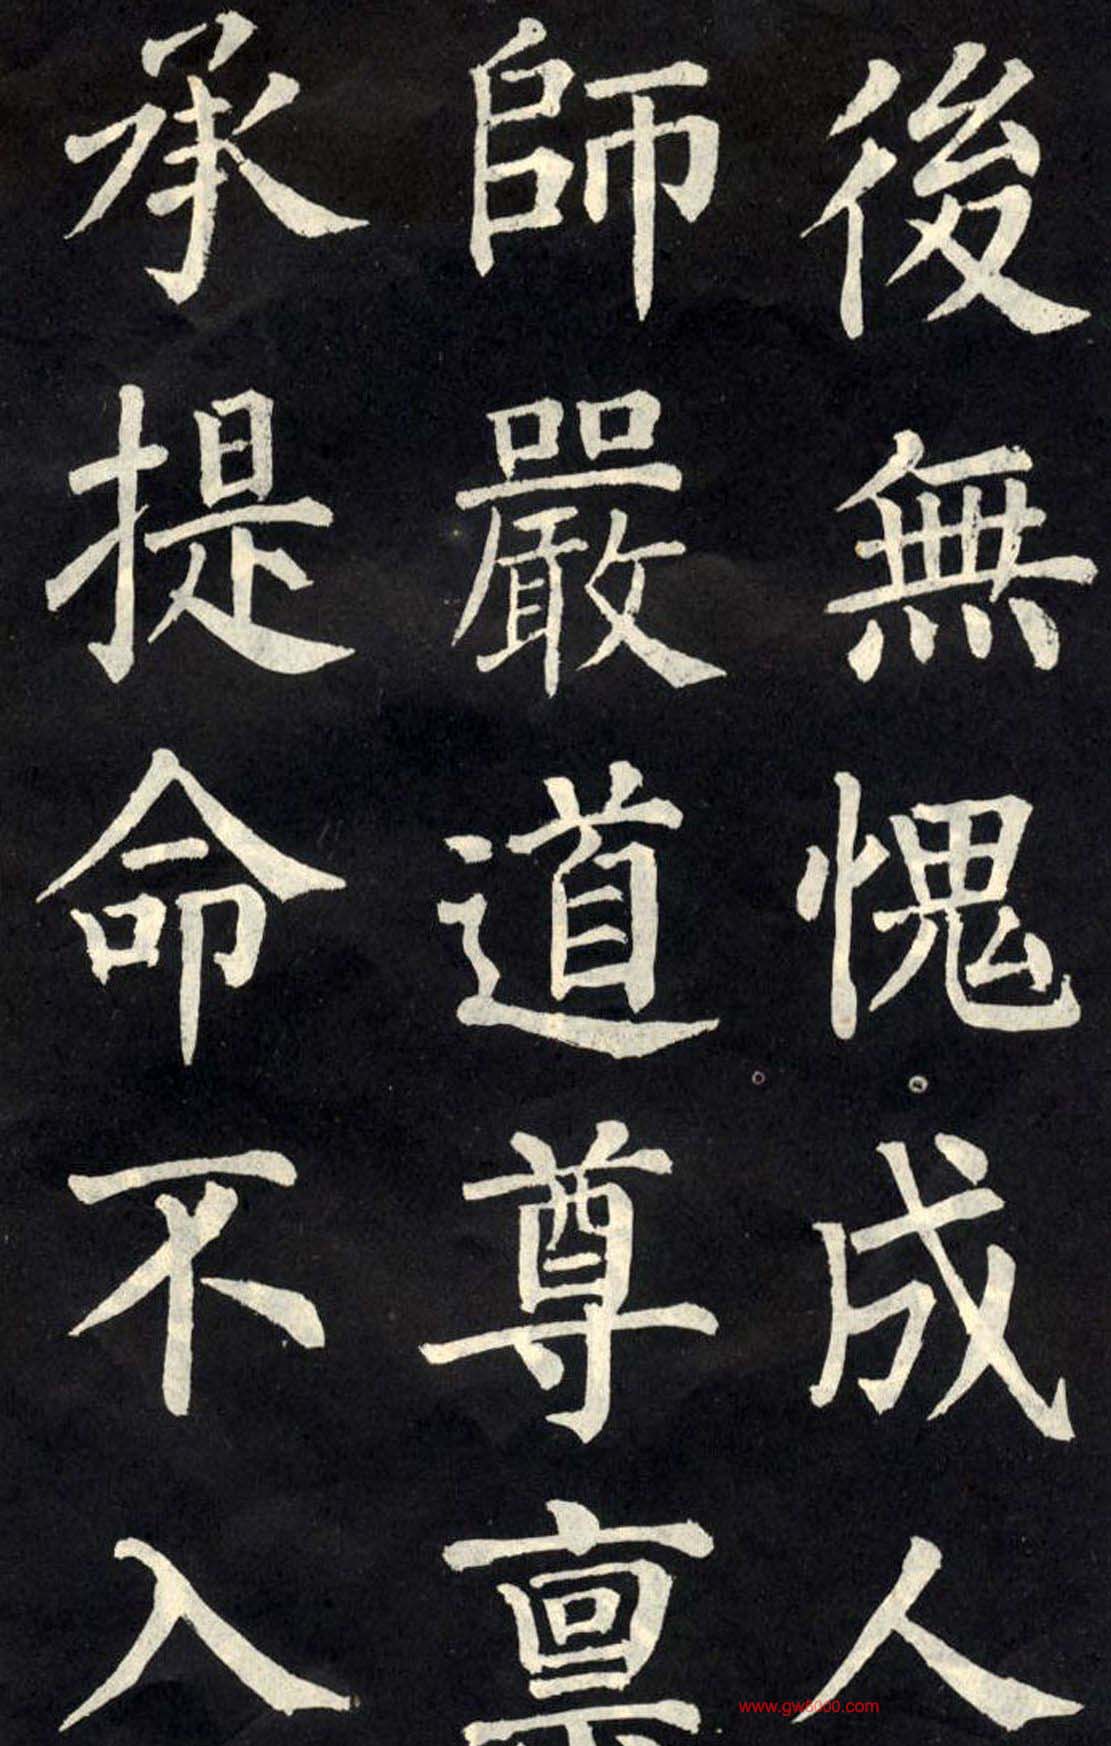 後無愧成人
師嚴道尊禀
承提命不入
www.gw8000.com